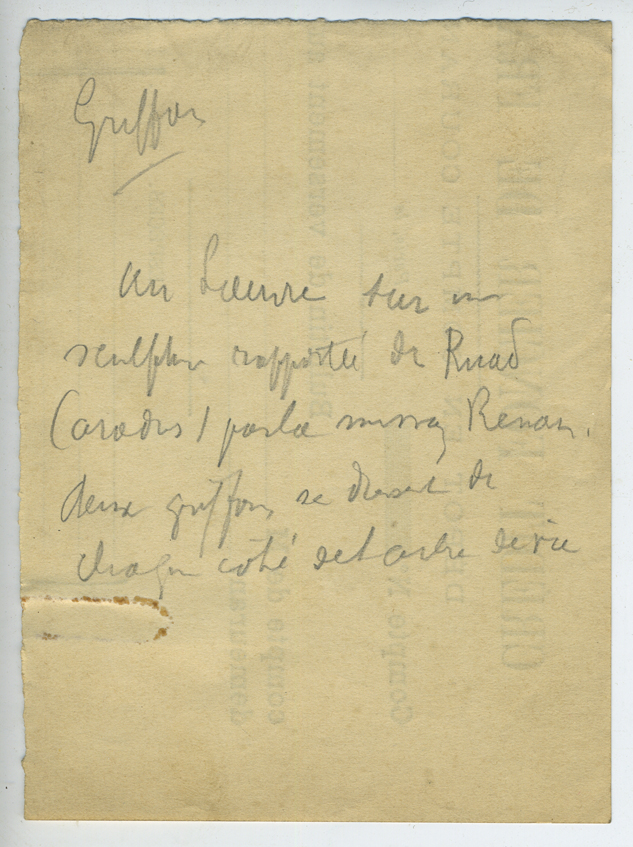 Griffon
Au Louvre sur une
sculpture rapportée de Ruad
(aradus) par la mission Renan.
deux griffons se dressent de
chaque côté de l'arbre de vie